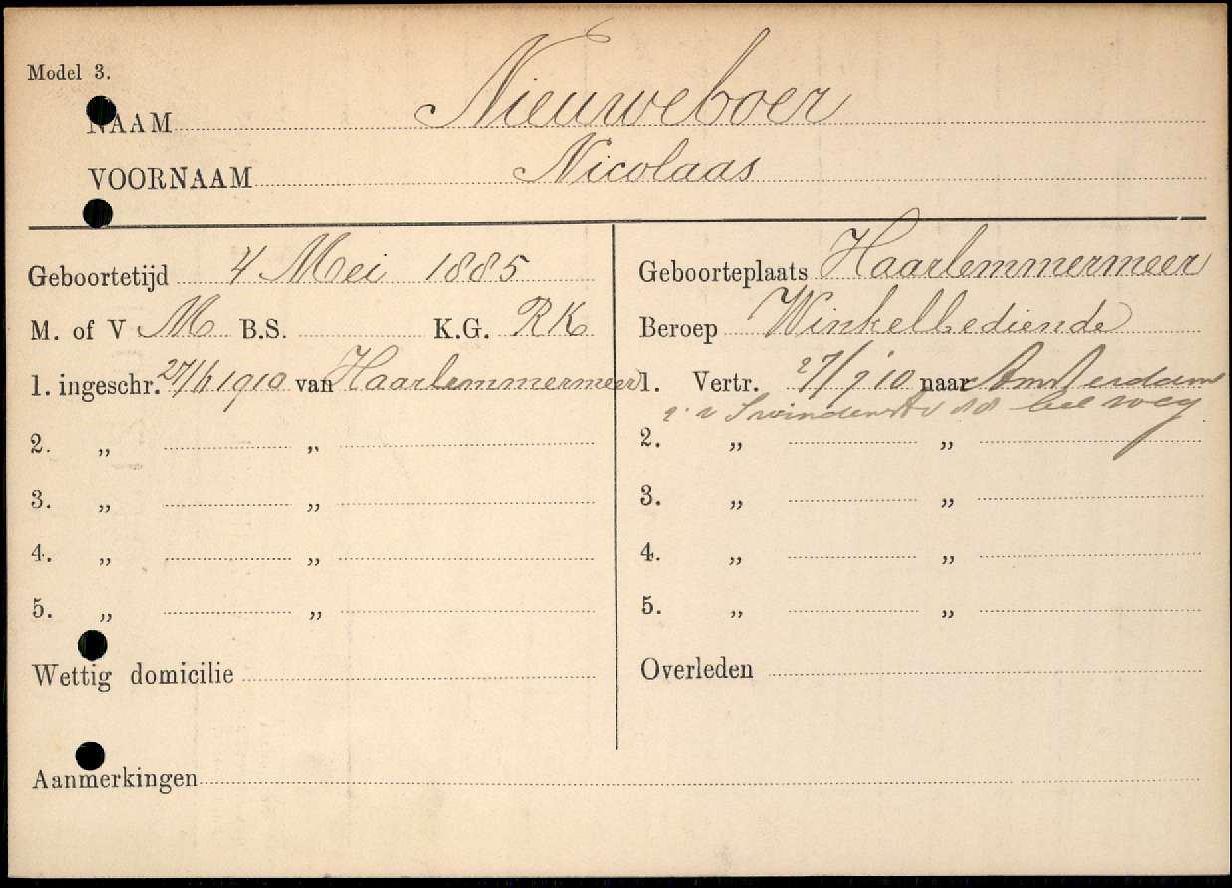 Model 3.
NAAM Nieuweboer
VOORNAAM Nicolaas
Geboortetijd 4 Mei 1885
M. of V M B.S. K.G. RK
1. ingeschr. 1910 van Haarlemmermeer
2. „ „
3. „ „
4. „ „
5. „ „
Wettig domicilie
Geboorteplaats Haarlemmermeer
Beroep Winkelbediende
1. Vertr. 27/9 10 naar Amsterdam
weg
2. „ „
3. „ „
4. „ „
5. „ „
Overleden
Aanmerkingen